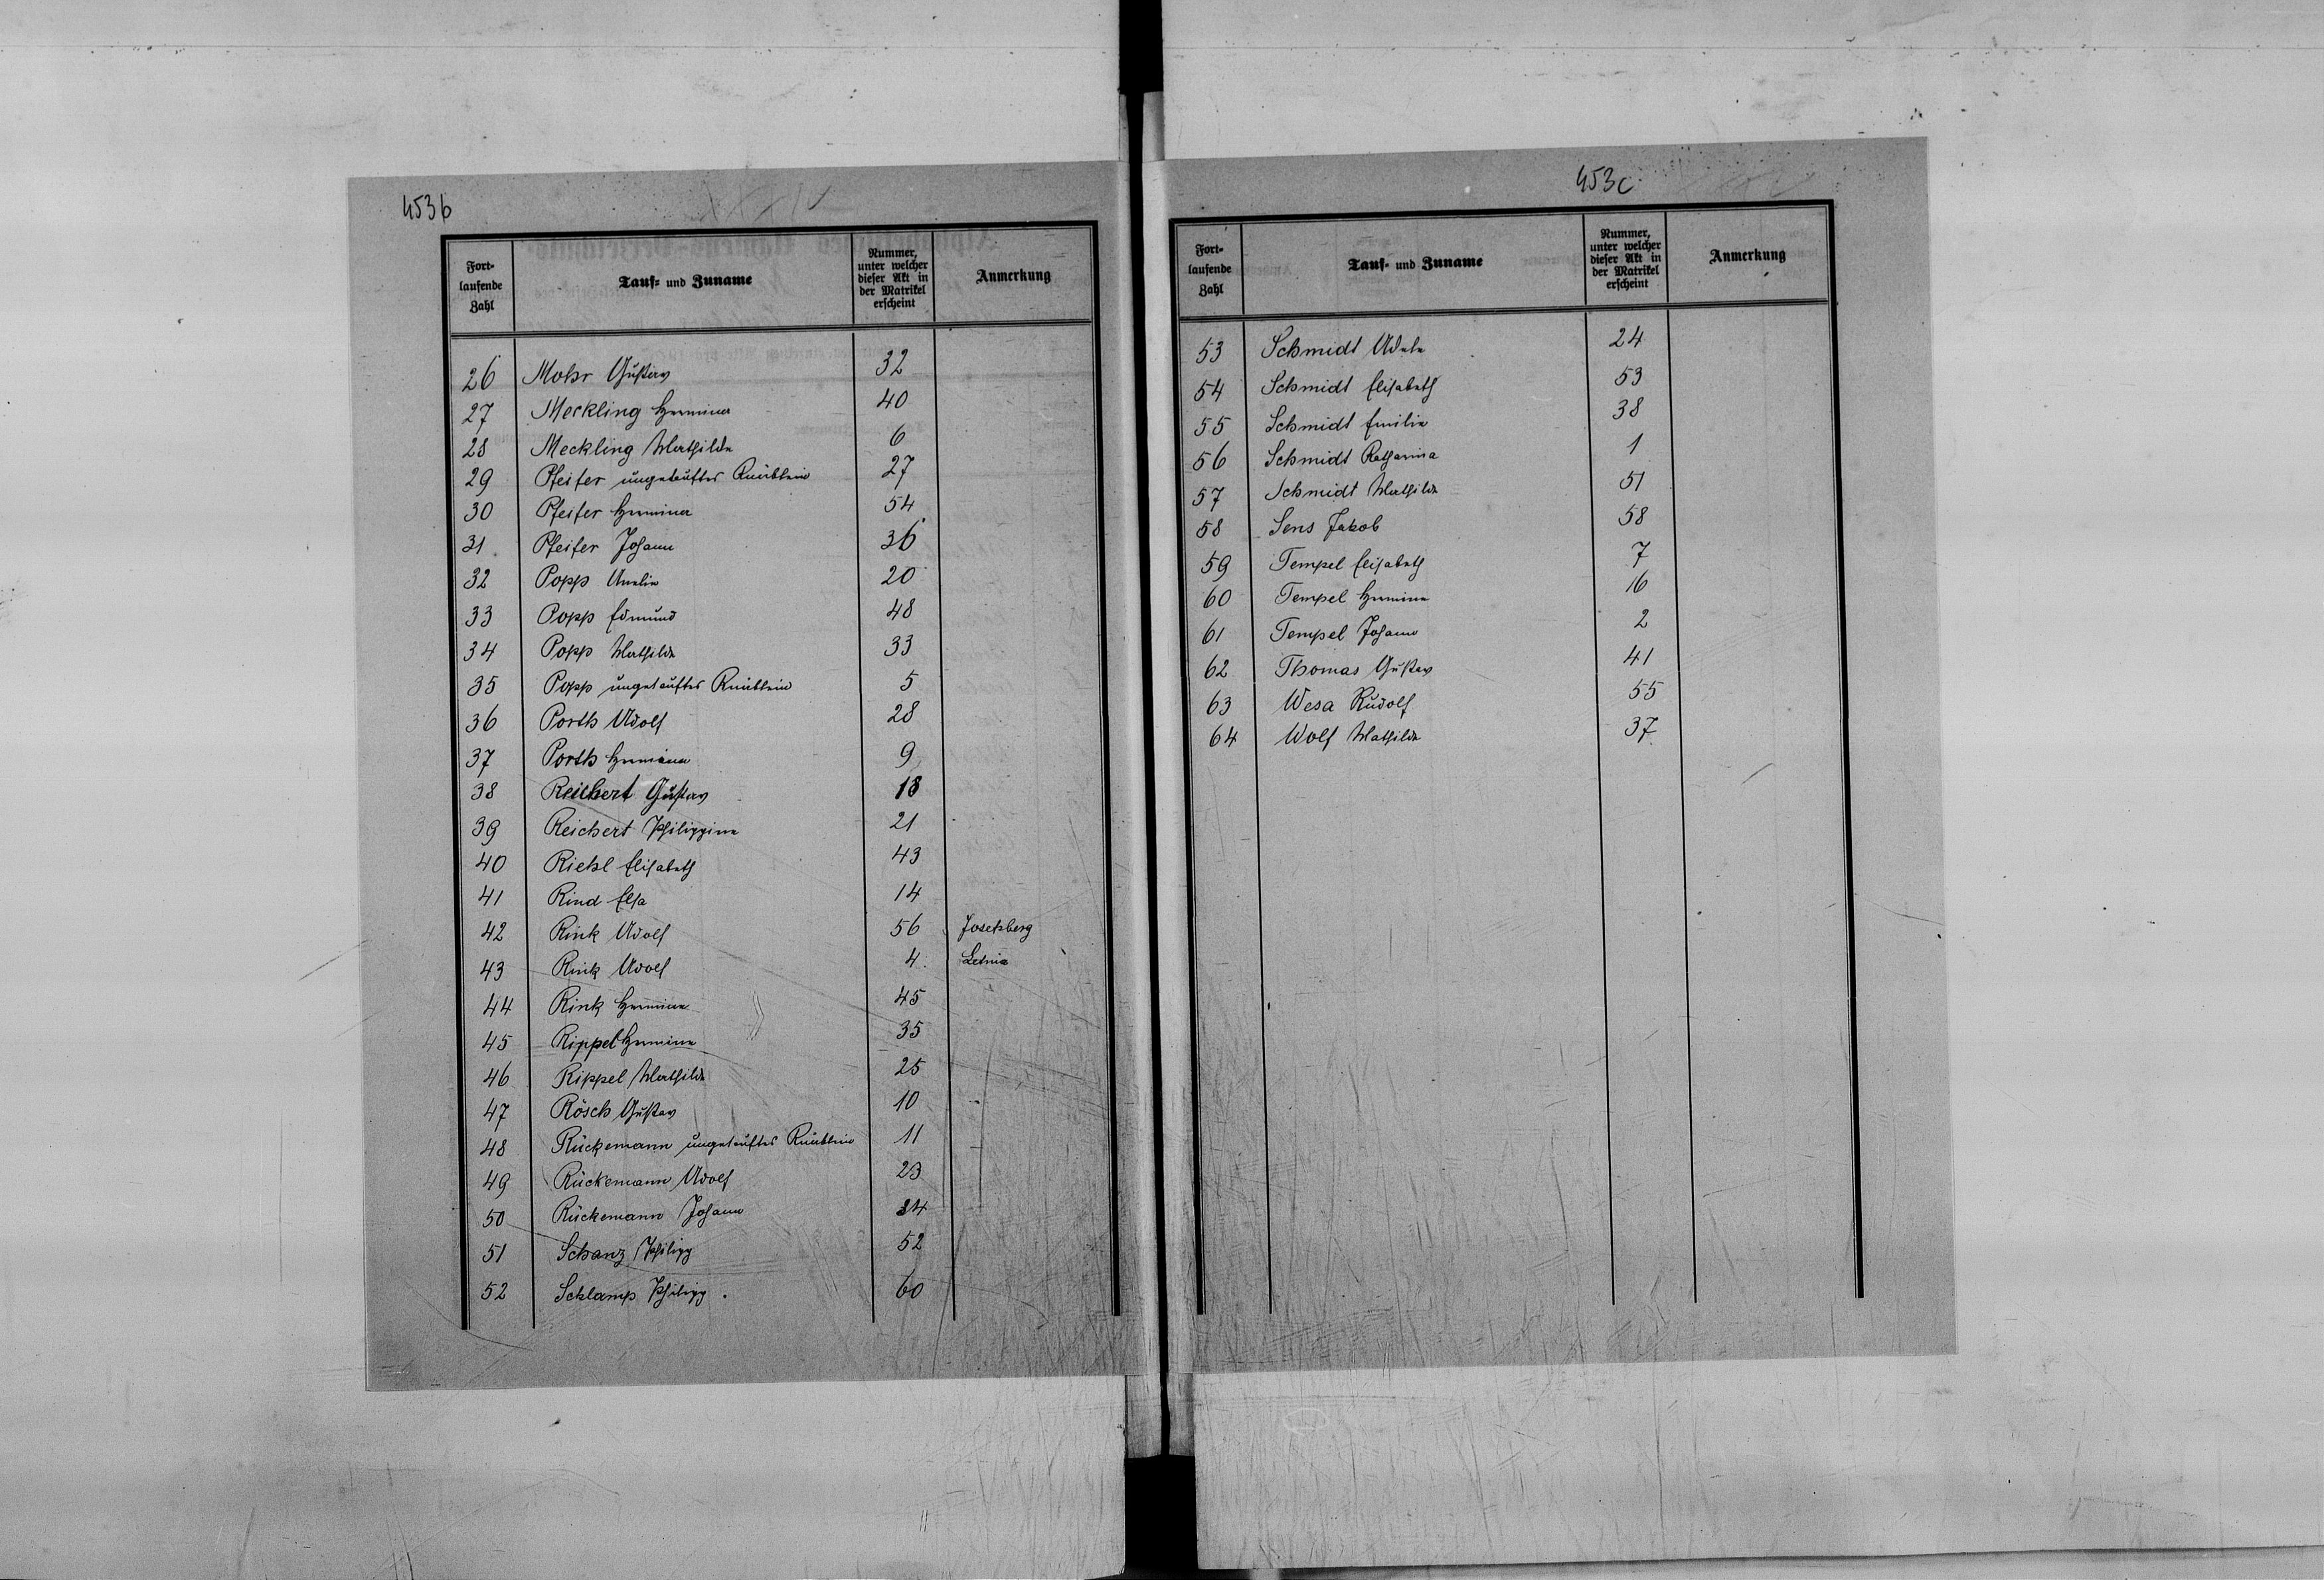 453b
Fort-
laufende
Zahl
Tauf- und Zuname
Nummer,
unter welcher
dieser Akt in
der Matrikel
erscheint
Anmerkung
26 Mohr Gustav 32
27 Meckling Hermina 40
28 Meckling Mathilde 6
29 Pfeifer ungetauftes Knäblein 27
30 Pfeifer Hermina 54
31 Pfeifer Johann 36
32 Popp Amalie 20
33 Popp Edmund 48
34 Popp Mathilde 33
35 Popp ungetauftes Knäblein 5
36 Porth Adolf 28
37 Porth Hermina 9
38 Reichert Gustav 18
39 Reichert Philippine 21
40 Riehl Elisabeth 43
41 Rind Elsa 14
42 Rink Adolf 56 Josefsberg
43 Rink Adolf 4 Letnia
44 Rink Hermine 45
45 Rippel Hermine 35
46 Rippel Mathilde 25
47 Rösch Gustav 10
48 Rückemann ungetauftes Knäblein 11
49 Rückemann Adolf 23
50 Rückemann Johann 34
51 Schanz Philipp 52
52 Schlamp Philipp 60
453c
Fort-
laufende
Zahl
Tauf- und Zuname
Nummer,
unter welcher
dieser Akt in
der Matrikel
erscheint
Anmerkung
53 Schmidt Adele 24
54 Schmidt Elisabeth 53
55 Schmidt Emilie 38
56 Schmidt Katharina 1
57 Schmidt Mathilde 51
58 Sens Jakob 58
59 Tempel Elisabeth 7
60 Tempel Hermine 16
61 Tempel Johann 2
62 Thomas Gustav 41
63 Wesa Rudolf 55
64 Wolf Mathilde 37